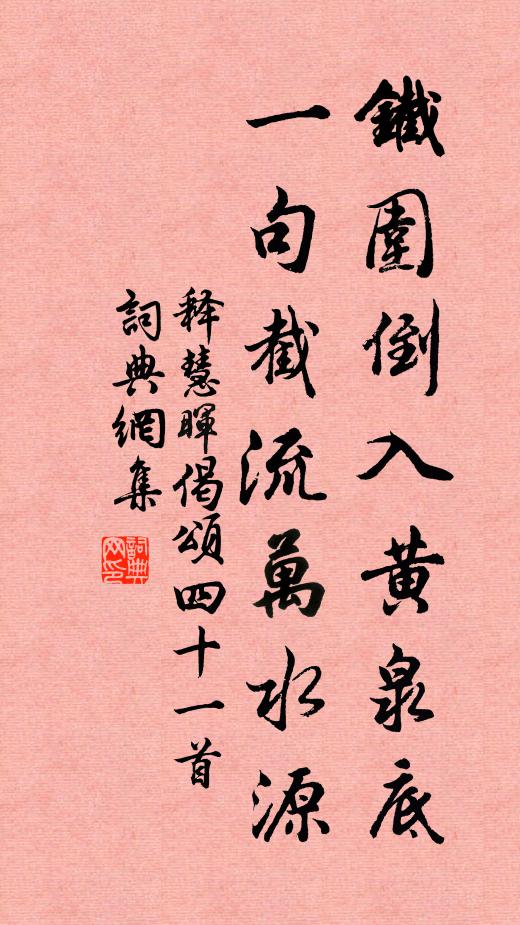 鐵圍倒入黃泉底
一句截流萬水源
释慧暉偈頌四十一首
詞典網集
詞典網印